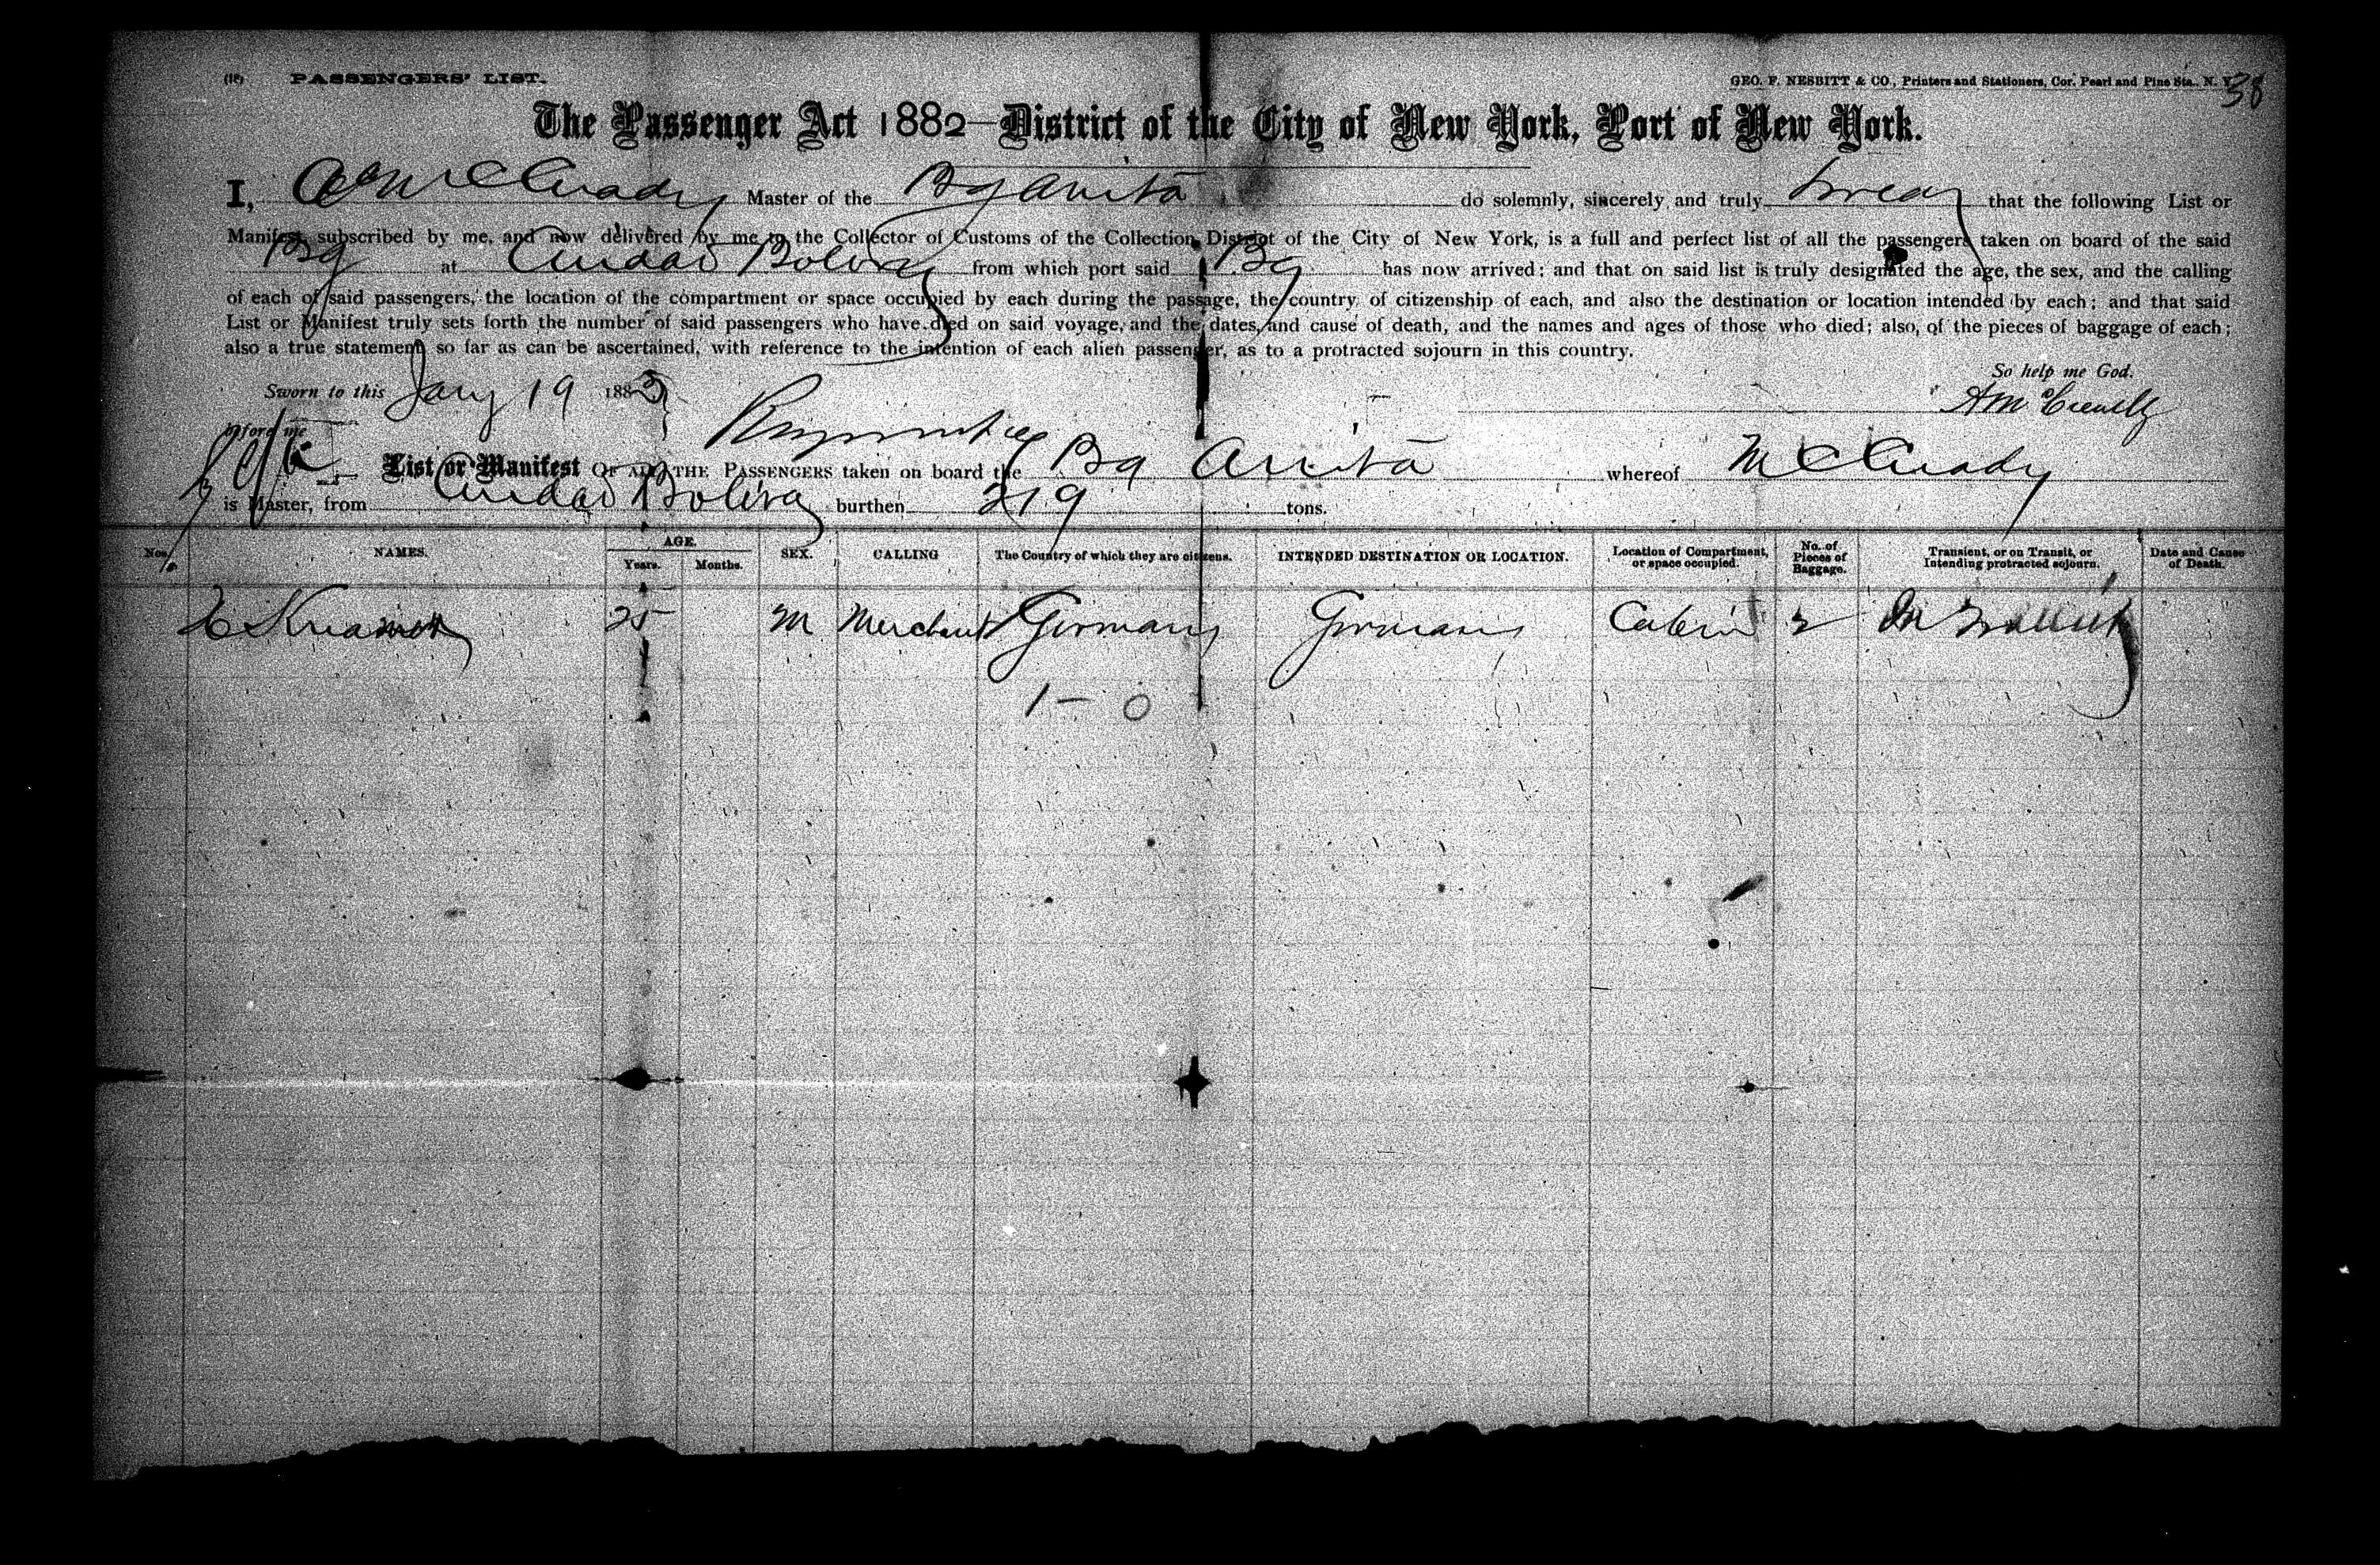 (18) PASSENGERS' LIST.
GEO. F. NESBITT & CO., Printers and Stationers, Cor. Pearl and Pine Sts., N. Y.
38
The Passenger Act 1882—District of the City of New York, Port of New York.
I, Master of the Bg Anita do solemnly, sincerely and truly swear that the following List or
Manifest, subscribed by me, and now delivered by me to the Collector of Customs of the Collection District of the City of New York, is a full and perfect list of all the passengers taken on board of the said
Bg at Ciudad Bolivar from which port said Bg has now arrived; and that on said list is truly designated the age, the sex, and the calling
of each of said passengers, the location of the compartment or space occupied by each during the passage, the country of citizenship of each, and also the destination or location intended by each; and that said
List or Manifest truly sets forth the number of said passengers who have died on said voyage, and the dates, and cause of death, and the names and ages of those who died; also, of the pieces of baggage of each;
also a true statement, so far as can be ascertained, with reference to the intention of each alien passenger, as to a protracted sojourn in this country.
So help me God.
Sworn to this Jany 19 1883
before me
List or Manifest OF ALL THE PASSENGERS taken on board the Bg Anita whereof
is Master, from Ciudad Bolivar burthen 219 tons.
Nos. NAMES. AGE. Years. Months. SEX. CALLING The Country of which they are citizens. INTENDED DESTINATION OR LOCATION. Location of Compartment, or space occupied. No. of Pieces of Baggage. Transient, or on Transit, or Intending protracted sojourn. Date and Cause of Death.
25 M Merchant Germany Germany Cabin 2 In Transit
1 - 0